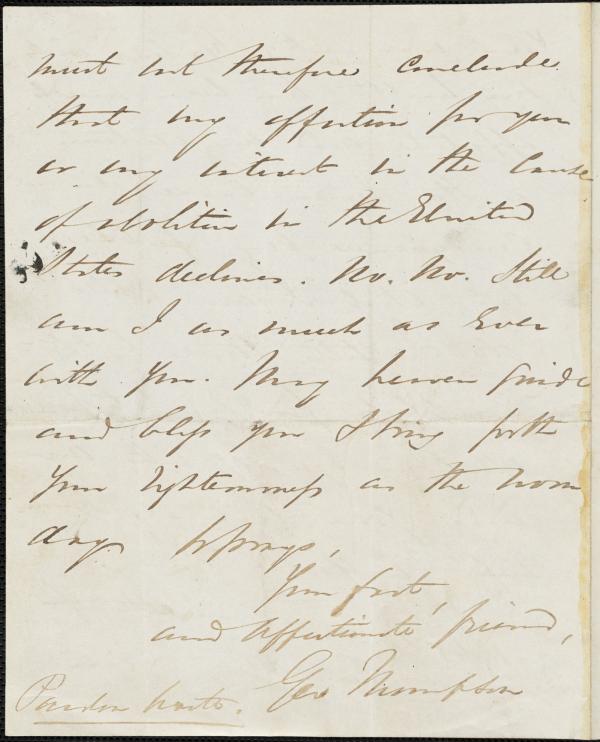 must not therefore conclude
that my affection for you
or my interest in the Cause
of abolition in the United
States declines. No. No. Still
am I as much as Ever
with you. May heaven guide
and bless you & bring forth
your righteousness as the noon
day
Your fast,
and affectionate friend,
Geo Thompson
Pardon haste.